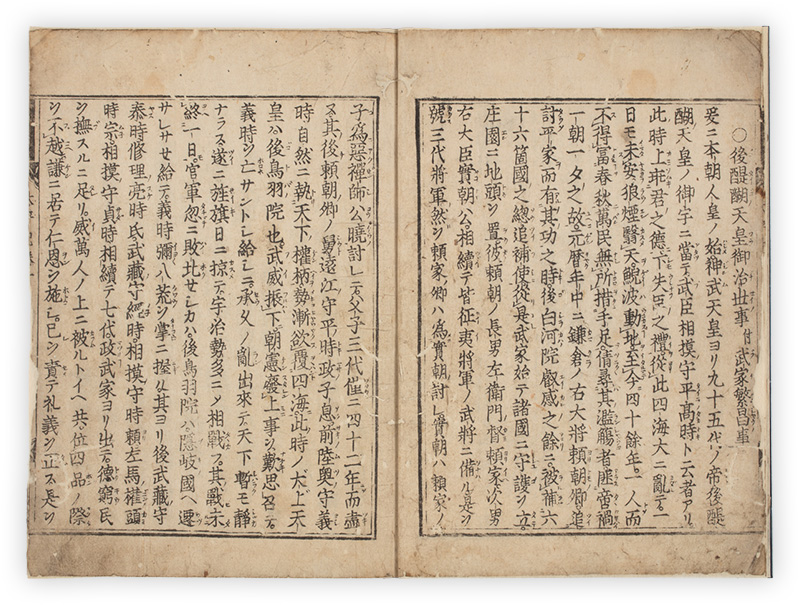 ○後醍醐天皇御治世事付武家繁昌事
爰ニ本朝人皇ノ始神武天皇ヨリ九十五代ノ帝後醍
醐天皇ノ御宇ニ當テ武臣相摸守平髙時ト云者アリ
此時上乖君之德下失臣之禮從此四海大ニ亂テ一
日モ未安狼煙翳天鯢波動地至今四十餘年一人而
不得冨春秋萬民無所措手足倩尋其濫觴者匪啻禍
一朝一夕之故元曆年中ニ鎌倉ノ右大將頼朝卿追
討平家而有其功之時後白河院叡感之餘ニ被補六
十六箇國之總追補使從是武家始テ諸國ニ守護ヲ立
庄園ニ地頭ヲ置彼頼朝ノ長男左衛門督頼家次男
右大臣實朝公相續テ皆征夷將軍ノ武將ニ備ル是ヲ
號三代將軍然ヲ頼家卿ハ爲實朝討レ實朝ハ頼家ノ
子爲惡禪師公曉討レテ父子三代僅ニ四十二年而盡
ヌ其後頼朝卿ノ舅遠江守平時政子息前陸奥守義
時自然ニ執天下權柄勢漸欲覆四海此時ノ太上天
皇ハ後鳥羽院也武威振下朝憲癈上事ヲ歎思召テ
義時ヲ亡サントシ給シニ承久ノ亂出來テ天下暫モ靜
ナラス遂ニ旌旗日ニ掠テ宇治勢多ニメ相戰フ其戰未
終一日官軍忽ニ敗北セシカハ後鳥羽院ハ隱岐國ヘ遷
サレサセ給テ義時彌八荒ヲ掌ニ握ル其ヨリ後武藏守
泰時修理亮時氏武藏守經時相摸守時頼左馬權頭
時宗相摸守貞時相續テ七代政武家ヨリ出テ德窮民
ヲ撫スルニ足リ威萬人ノ上ニ被ルトイヘ共位四品ノ際
ヲ不越謙ニ居テ仁恩ヲ施シ己ヲ責テ礼義ヲ正ス是ヲ